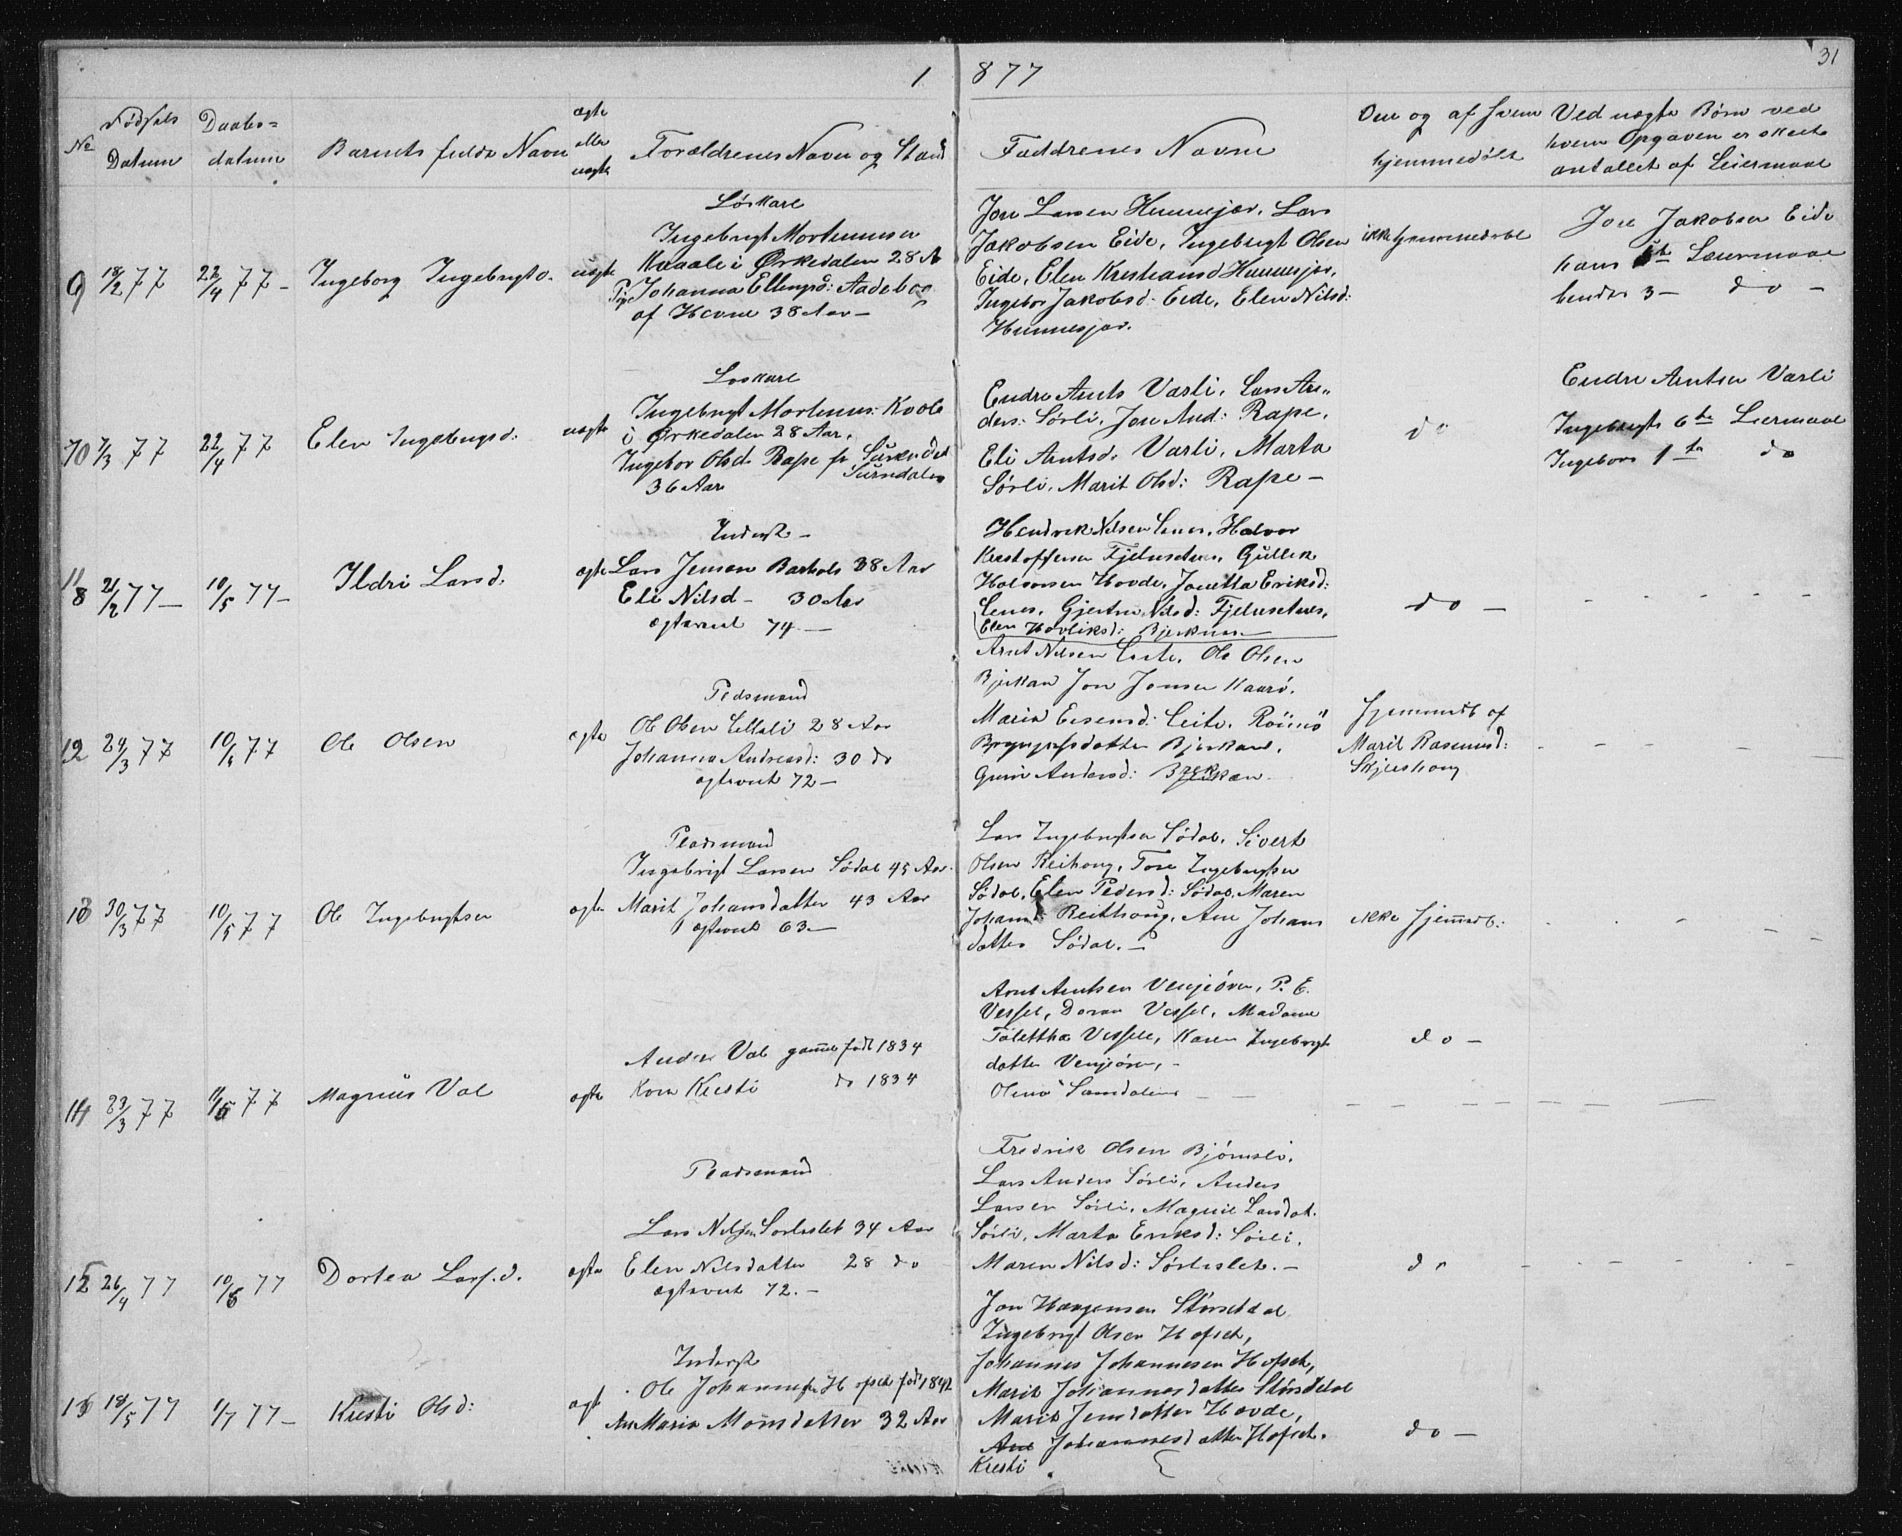 31
1877
No
Fødsels Datum
Daabs-datum
Barnets fulde Navn
ægte eller uægte
Forældrenes Navn og Stand
Faddrenes Navne
Om og af hvem hjemmedøbt
Ved uægte Børn ved
hvem Opgaven er skeet
antallet af Leiermaal
9 18/2 77 22/4 77 - Ingeborg Ingebrigtd. uægte
Løskarl
Ingebrigt Mortensen
Kvaale i Ørkedalen 28 A
Pig Johanna Ellingsd:
af Hevne 38 Aar -
Jon Larsen Hennesjor, Lars
Jakobsen Eide, Ingebrigt Olsen
Eide, Elen Kristiansd Hennesjor,
Ingebor Jakobsd: Eide, Elen Nilsd:
Hennesjor.
ikke hjemmedøbt
Jon Jakobsen Eide
hans Leiermaal
hendes 3 - do -
10 7/3 77 22/4 77 Elen Ingebrigtsd. uægte
Løskarl
Ingebrigt Mortens: Kvole
i Ørkedalen 28 Aar,
Ingebor Olsd. Rape fr
Surndalen
36 Aar
Endre Arnts Varli, Lars An-
ders: Sørli, Jon And: Rape,
Eli Arntsd. Varli, Marta
Sørli, Marit Olsd: Rape -
do
Endre Arntsen Varli
Ingebrigts 6te Leiermaal
Ingebors 1ste do
11 21/2 77 - 10/5 77 - Ildri Larsd. ægte
Inderst -
Lars Jensen 38 Aar
Eli Nilsd - 30 Aar
ægteviet 74 -
Hendrik Nilsen Lenes, Halvor
Kristoffersen Fjelnsetnes, Gullik
Halvorsen Hovde, Jonetta Eriksd:
Lenes, Gjertru Nilsd: Fjelnsetnes,
Elen
do -
12 24/3 77 10/5 77 Ole Olsen ægte
Pladsmand
Ole Olsen 28 Aar
Johanna Andreasd: 30 do
ægteviet 72 -
Arnt Nilsen Leite, Ole Olsen
Bjerkan Jon Jonsen
Maria Leite,
Bjerkan,
Andersd: Bjerkan
hjemmedt af
Marit Rasmusd:
13 30/3 77 10/5 77 Ole Ingebrigtsen ægte
Pladsmand
Ingebrigt Larsen Sødal 45 Aar.
Marit Johansdatter 43 Aar
ægteviet 63 -
Lars Ingebrigtsen Sødal, Sivert
Olsen Reithaug, Tore Ingebrigtsen
Sødal, Elen Pedersd: Sødal, Maren
Johansd Reithaug, Ane Johans
datter Sødal. -
ikke hjemmedb:
14 23/3 77 77 Magnus Val ægte
Anders Val født 1834
Kona Kirsti do 1834
Arnt Arntsen Venjeøren, P. E.
Vessel, Vessel, Madame
Vessel, Karen Ingebrigt
datter Venjeøren, -
Olena
do -
15 26/4 77 10/6 77 Dortea Lars.d. ægte
Pladsmand
Lars Nilsen Sørlislet 34 Aar
Elen Nilsdatter 28 do
ægteviet 72. -
Fredrik Olsen Bjørnsli,
Lars Anders Sørli, Anders
Larsen Sørli, Larsdat.
Sørli, Marta Eriksd: Sørli,
Maren Nilsd: Sørlislet. -
do
16 18/5 77 1/7 77 - Kirsti Olsd: ægt
Inderst
Ole Johannesen Hofset født 1842
Ane Maria Monsdatter 32 Aar
Jon Størsetdal
Ingebrigt Olsen Hofset,
Johannes Johannesen Hofset,
Marit Johannesdatter Størsetdal
Marit Jensdatter Hovde,
Ane Johannesdatter Hofset.
Kirsti
do -